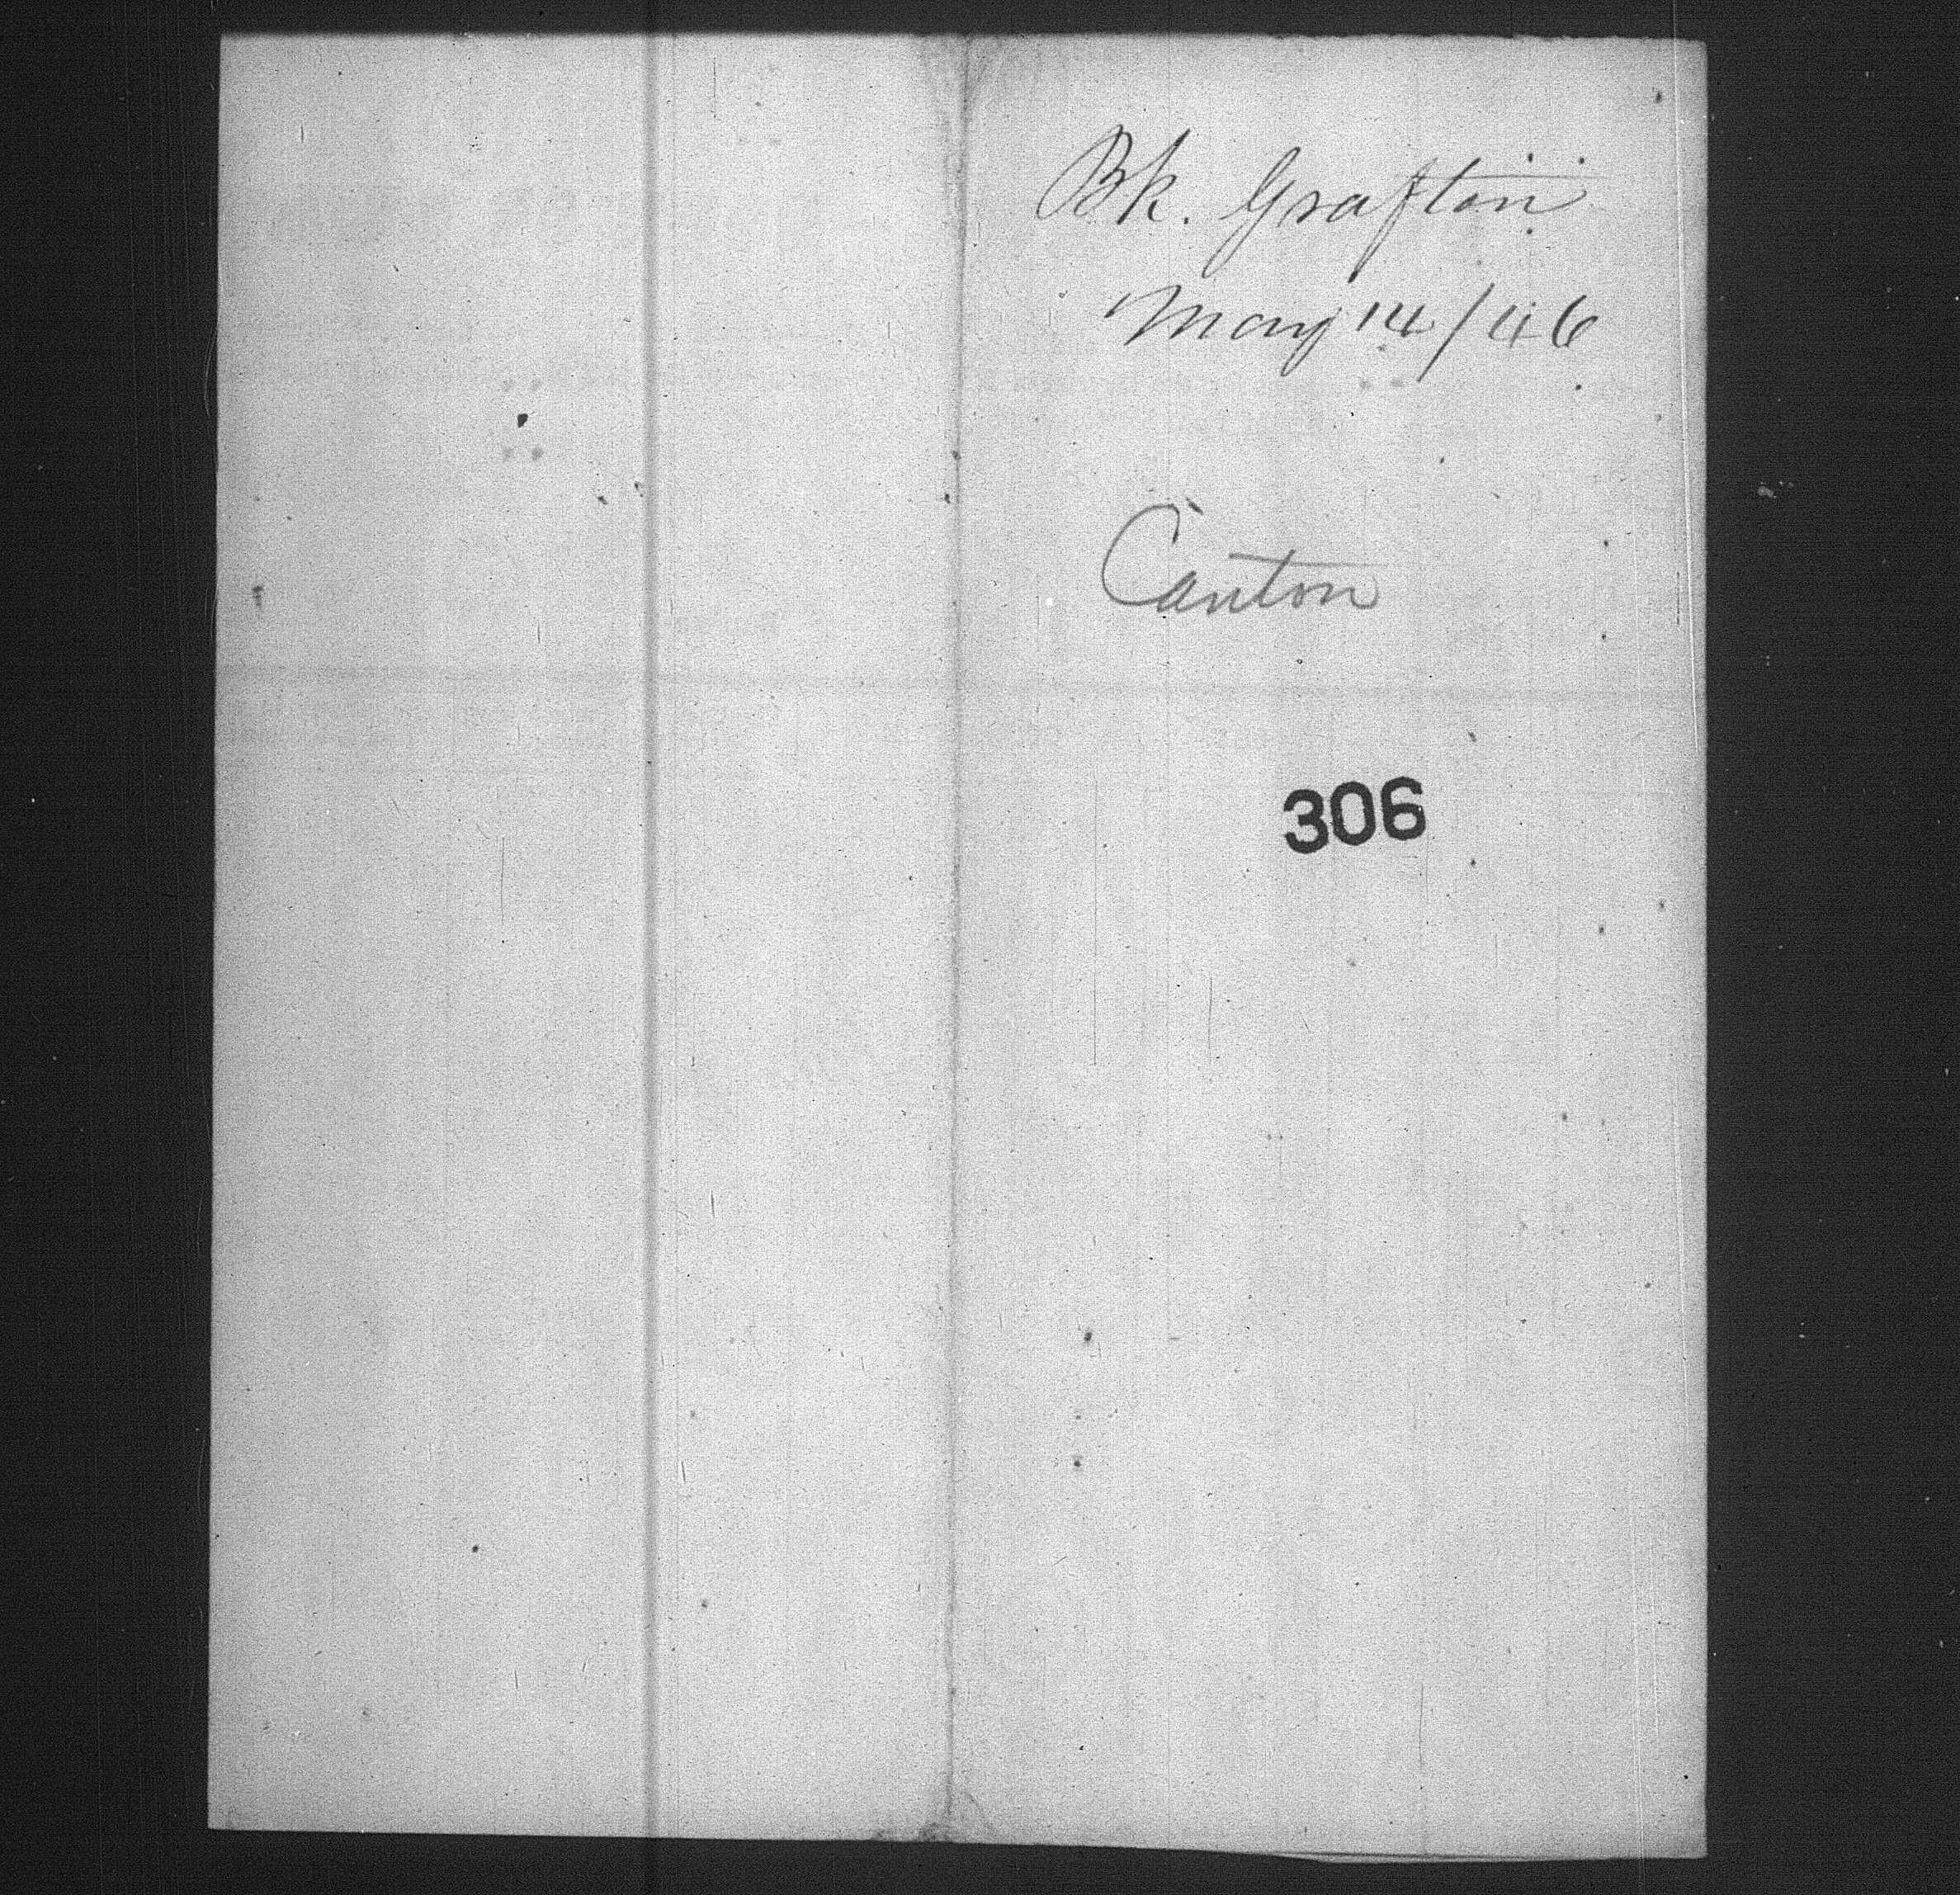 Bk. Grafton
May 14/46
Canton
306